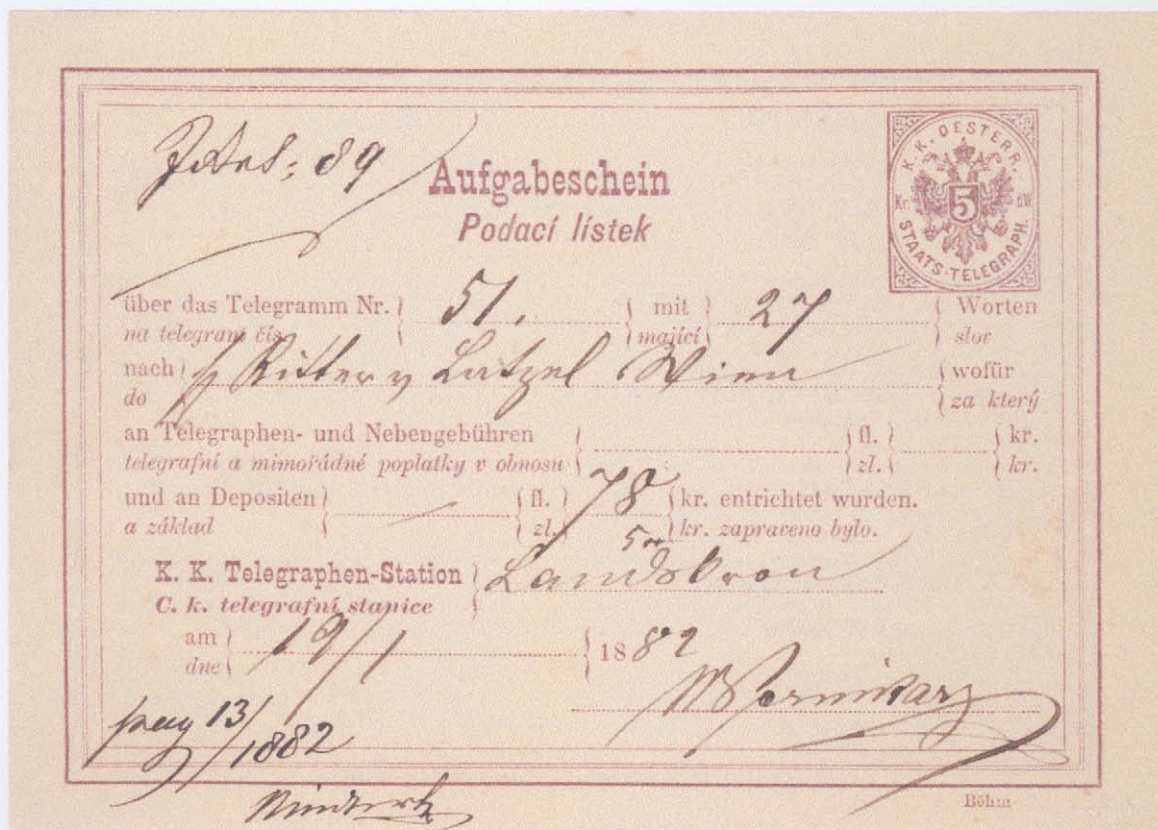 : 89
Aufgabeschein
Podací lístek
K. K. OESTERR.
Kr. 5 öW.
STAATS-TELEGRAPH.
über das Telegramm Nr. 51. mit 27 Worten
na telegram čís. mající slov
nach Ritter v Latzel Wien wofür
do za který
an Telegraphen- und Nebengebühren fl. kr.
telegrafní a mimořádné poplatky v obnosu zl. kr.
und an Depositen fl. 78 kr. entrichtet wurden.
a základ zl. kr. zapraveno bylo.
5
K. K. Telegraphen-Station Landskron
C. k. telegrafní stanice
am 19/1 1882
dne
pag 13/
1882
Böhm